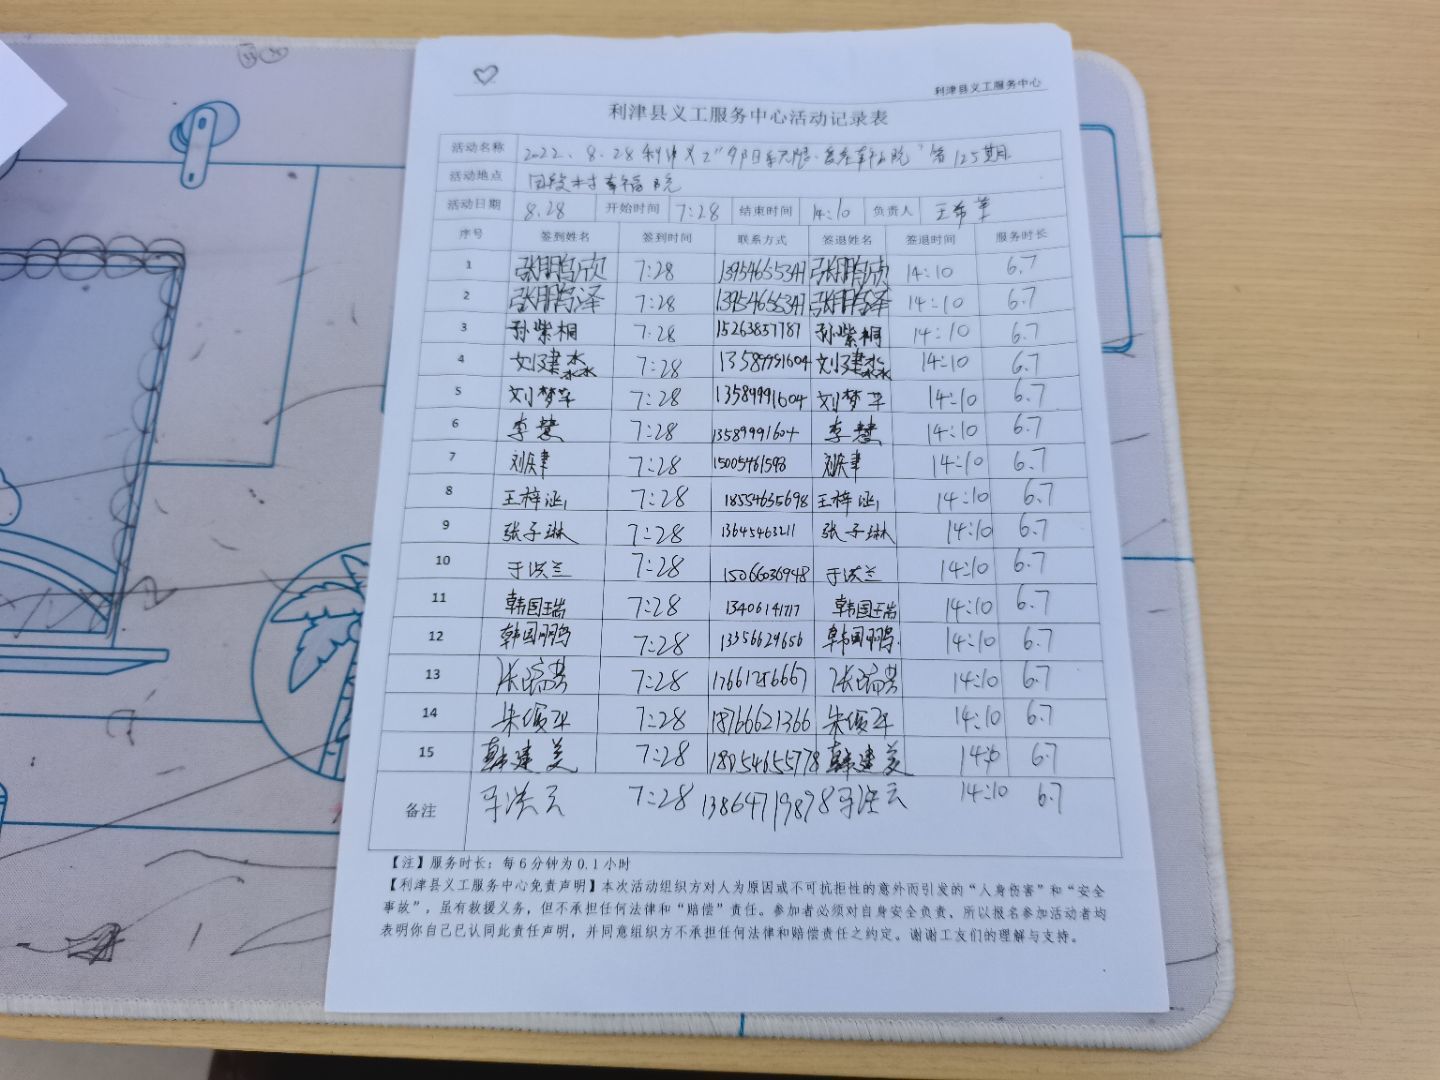 利津县义工服务中心
利津县义工服务中心活动记录表
活动名称 2022.8.28利津义工"夕阳无限·爱在幸福院"第125期
活动地点 幸福院
活动日期 8.28 开始时间 7:28 结束时间 14:10 负责人 王希苹
序号 签到姓名 签到时间 联系方式 签退姓名 签退时间 服务时长
1 张鹏欣 7:28 13954655347 张鹏欣 14:10 6.7
2 张鹏泽 7:28 13954655347 张鹏泽 14:10 6.7
3 孙紫桐 7:28 15263857787 孙紫桐 14:10 6.7
4 刘建淼 7:28 13589991604 刘建淼 14:10 6.7
5 刘梦华 7:28 13589991604 刘梦华 14:10 6.7
6 李慧 7:28 13589991604 李慧 14:10 6.7
7 刘庆聿 7:28 15005461598 刘庆聿 14:10 6.7
8 王梓涵 7:28 18554635698 王梓涵 14:10 6.7
9 张子琳 7:28 13645463211 张子琳 14:10 6.7
10 于洪兰 7:28 15066036948 于洪兰 14:10 6.7
11 韩国瑞 7:28 13406141717 韩国瑞 14:10 6.7
12 韩国鹏 7:28 13356629656 韩国鹏 14:10 6.7
13 张瑞芸 7:28 17661256667 张瑞芸 14:10 6.7
14 7:28 18766621366 14:10 6.7
15 韩建美 7:28 18954655778 韩建美 14:10 6.7
备注 于洪云 7:28 13864719898 于洪云 14:10 6.7
【注】服务时长：每6分钟为0.1小时
【利津县义工服务中心免责声明】本次活动组织方对人为原因或不可抗拒性的意外而引发的“人身伤害”和“安全
事故”，虽有救援义务，但不承担任何法律和“赔偿”责任。参加者必须对自身安全负责，所以报名参加活动者均
表明你自己已认同此责任声明，并同意组织方不承担任何法律和赔偿责任之约定。谢谢工友们的理解与支持。